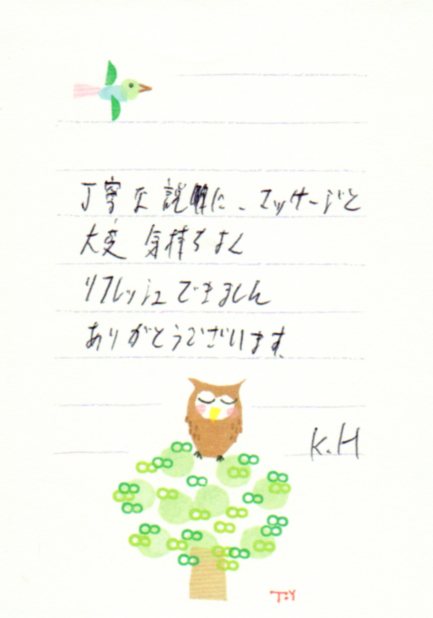 丁寧な説明に、マッサージと
大変 気持ちよく
リフレッシュできました
ありがとうございます。
K.H
T.Y